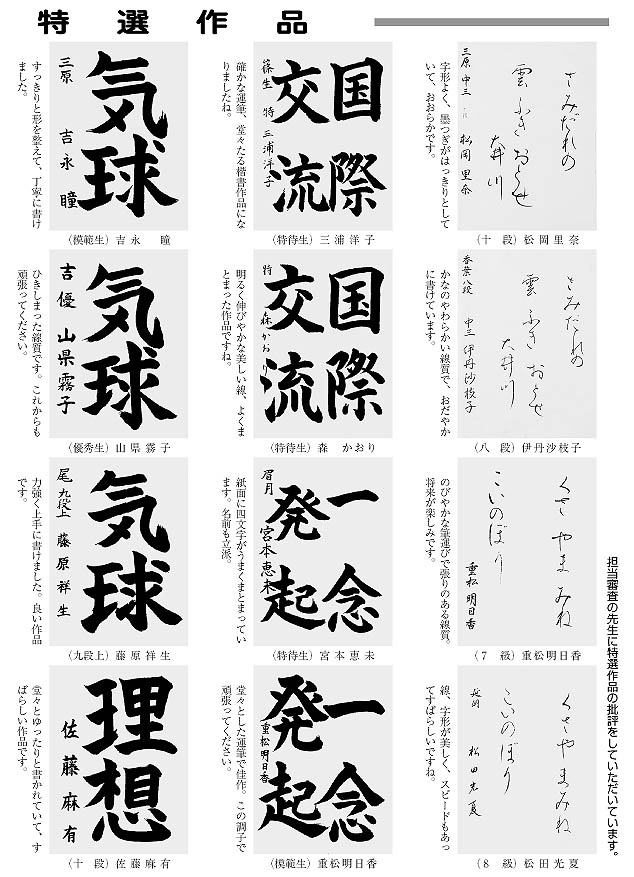 特選作品
担当審査の先生に特選作品の批評をしていただいています。
さみだれの
雲ふきおとせ
大井川
三原 中三
松岡里奈
字形よく、墨つぎがはっきりとして
いて、おおらかです。
(十 段)松岡里奈
国際
交流
篠生 特 三浦洋子
確かな運筆、堂々たる楷書作品にな
りましたね。
(特待生)三浦洋子
気球
三原 吉永 瞳
すっきりと形を整えて、丁寧に書け
ました。
(模範生)吉永 瞳
さみだれの
雲ふきおとせ
大井川
香葉八段 中三 伊丹沙枝子
かなのやわらかい線質で、おだやか
に書けています。
(八 段)伊丹沙枝子
国際
交流
特 森かおり
明るく伸びやかな美しい線、よくま
とまった作品ですね。
(特待生)森 かおり
気球
吉優 山県霧子
ひきしまった線質です。これからも
頑張ってください。
(優秀生)山県霧子
くさやまみね
こいのぼり
重松明日香
のびやかな筆運びで張りのある線質。
将来が楽しみです。
(7 級)重松明日香
一念
発起
眉月 宮本恵未
紙面に四文字がうまくまとまってい
ます。名前も立派。
(特待生)宮本恵未
気球
尾 九段上 藤原祥生
力強く上手に書けました。良い作品
です。
(九段上)藤原祥生
くさやまみね
こいのぼり
松田光夏
線、字形が美しく、スピードもあっ
てすばらしいですね。
(8 級)松田光夏
一念
発起
重松明日香
堂々とした運筆で佳作。この調子で
頑張ってください。
(模範生)重松明日香
理想
佐藤麻有
堂々とゆったりと書かれていて、す
ばらしい作品です。
(十 段)佐藤麻有